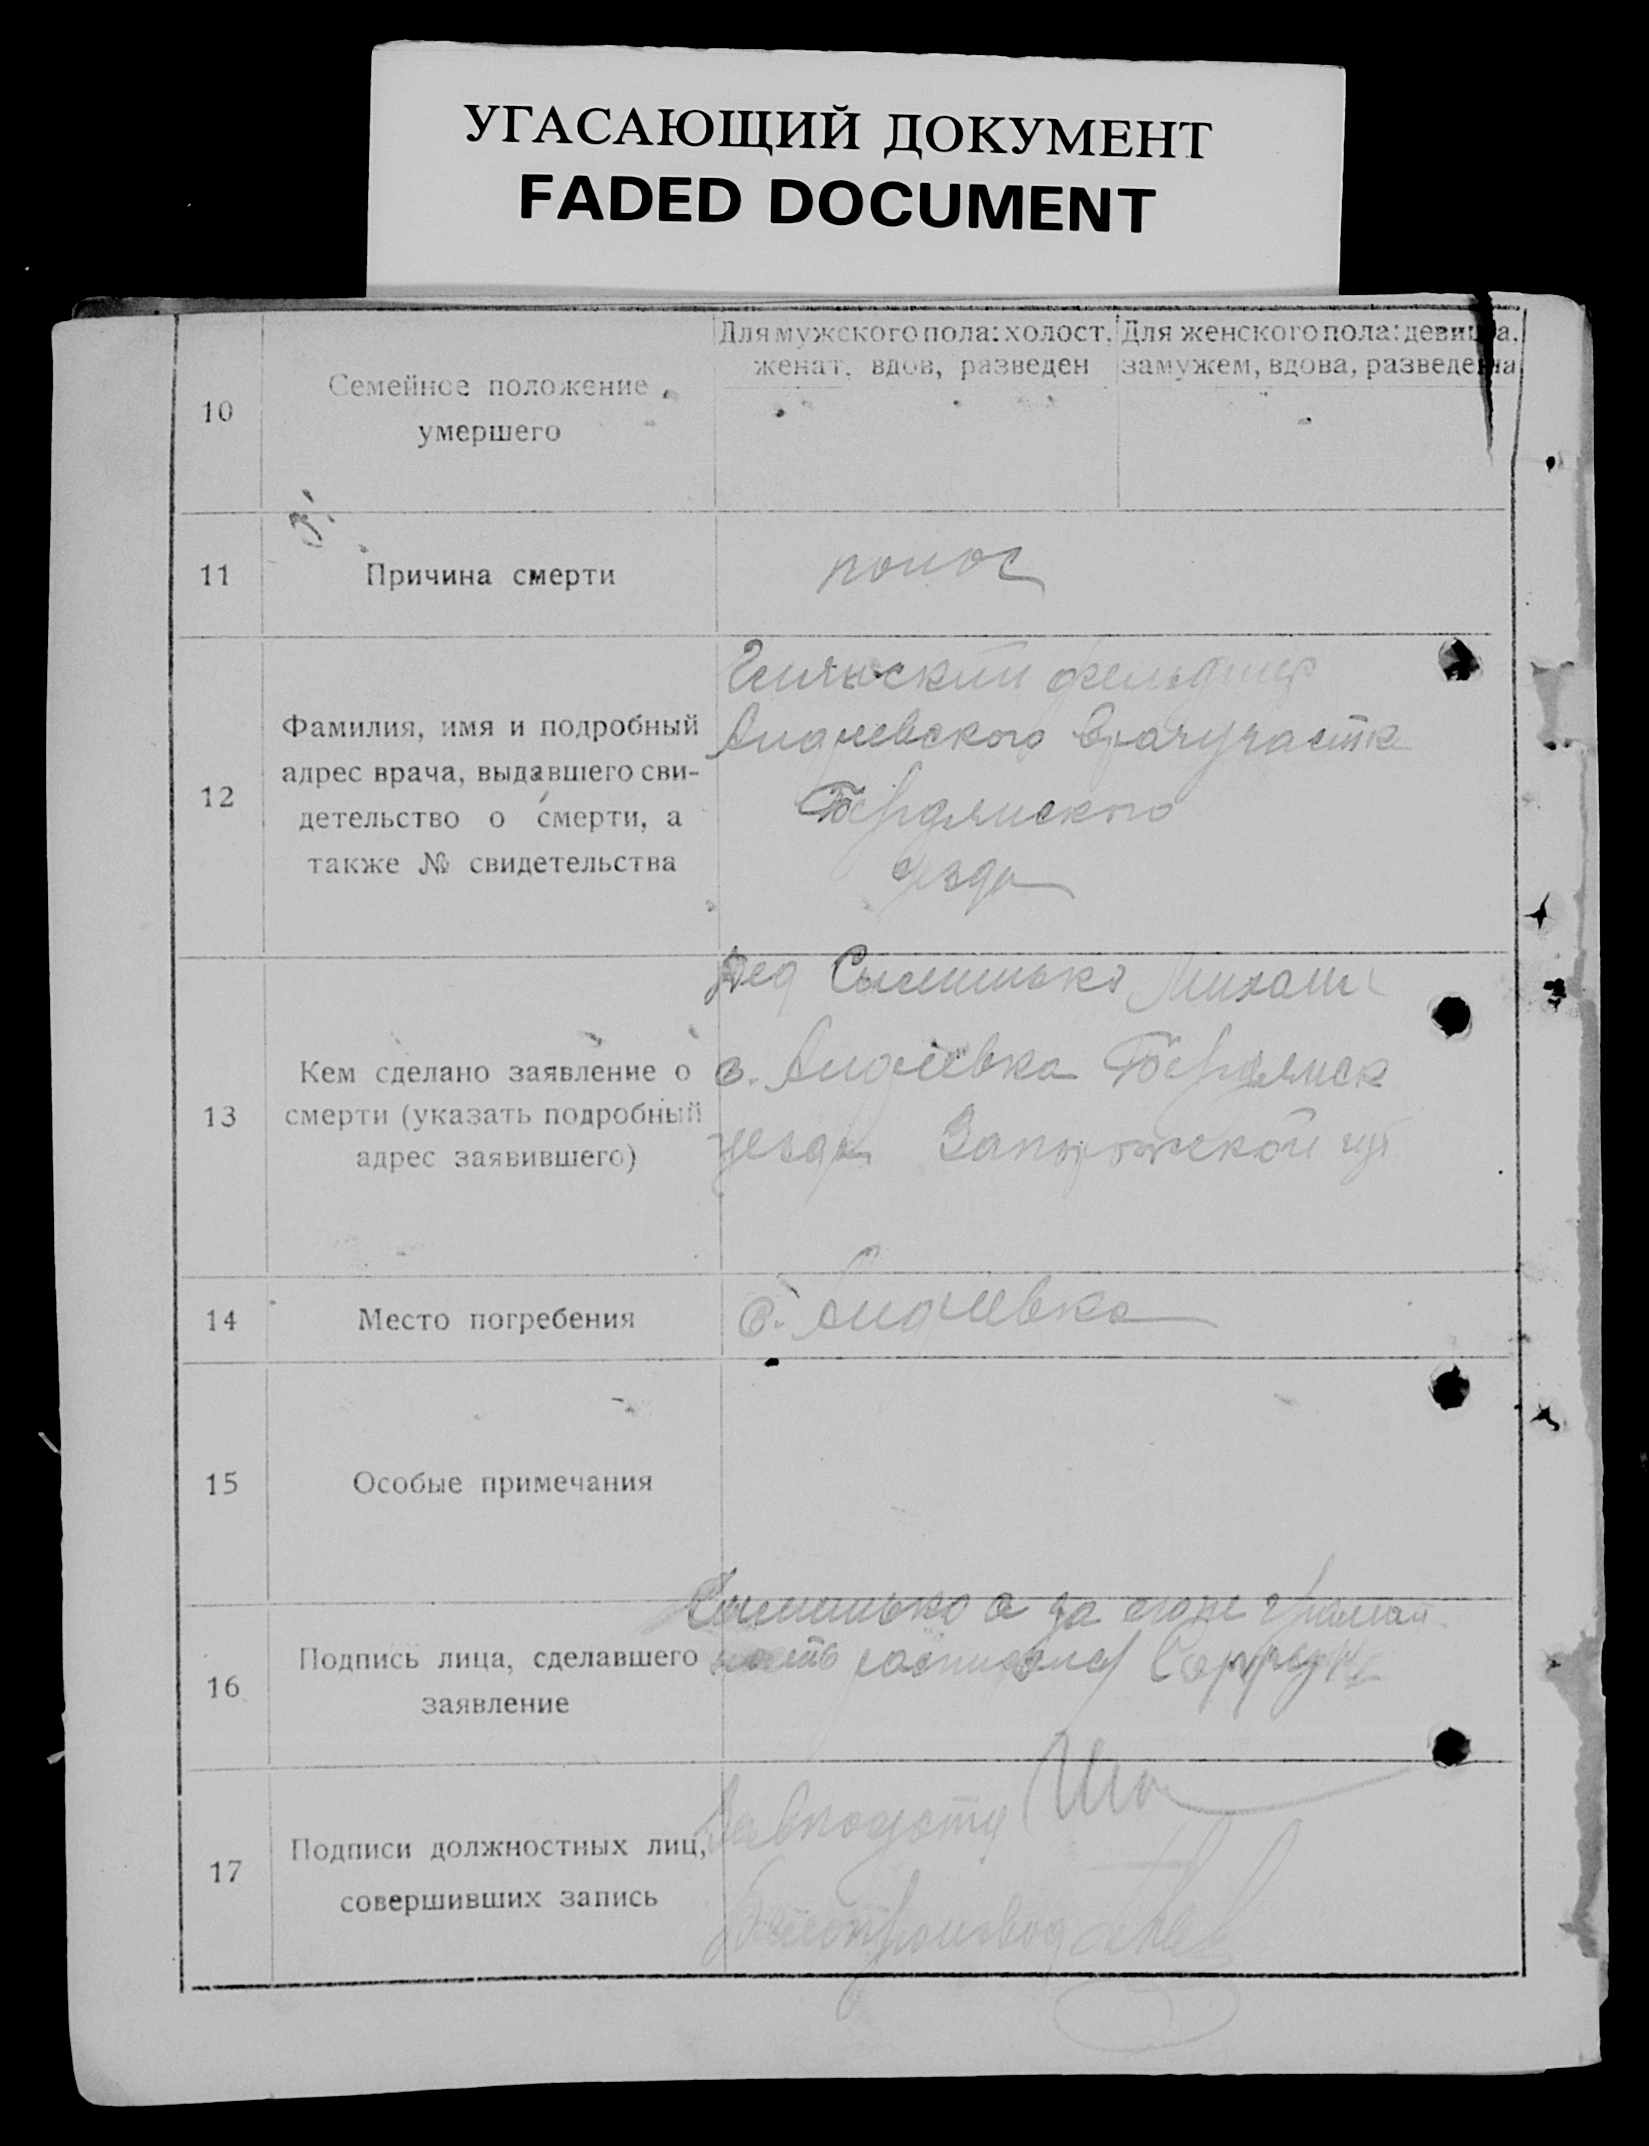 УГАСАЮЩИЙ ДОКУМЕНТ
FADED DOCUMENT
10
Семейное положение
умершего
Для мужского пола: холост,
женат, вдов, разведен
Для женского пола: девица,
замужем, вдова, разведена
11
Причина смерти
понос
12
Фамилия, имя и подробный
адрес врача, выдавшего сви-
детельство о смерти, а
также № свидетельства
фельдшер
Андреевского Врачучастка
Бердянского
уезда
13
Кем сделано заявление о
смерти (указать подробный
адрес заявившего)
Дед Михаил
с. Андреевка Бердянск
уезда Запорожской губ
14
Место погребения
с. Андреевка
15
Особые примечания
16
Подпись лица, сделавшего
заявление
а за его не грамот
ность расписался
17
Подписи должностных лиц,
совершивших запись
Завподотд